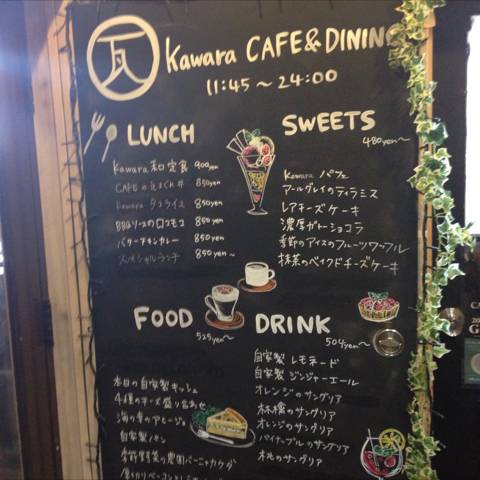 瓦 Kawara CAFE&DINING
11:45～24:00
LUNCH
Kawara 和定食 900yen
850yen
Kawara タコライス 850yen
BBQソースのロコモコ 850yen
バターチキンカレー 850yen
スペシャルランチ 850yen～
SWEETS
480yen～
Kawara パフェ
アールグレイのティラミス
レアチーズケーキ
濃厚ガトーショコラ
季節のアイスのフルーツワッフル
抹茶のベイクドチーズケーキ
FOOD
525yen～
本日の自家製キッシュ
4種のチーズ盛り合わせ
海の幸のアヒージョ
自家製パン
季節野菜の農園バーニャカウダ
厚切りベーコンと
DRINK
504yen～
自家製 レモネード
自家製 ジンジャーエール
オレンジのサングリア
林檎のサングリア
オレンジのサングリア
パイナップルのサングリア
桃のサングリア